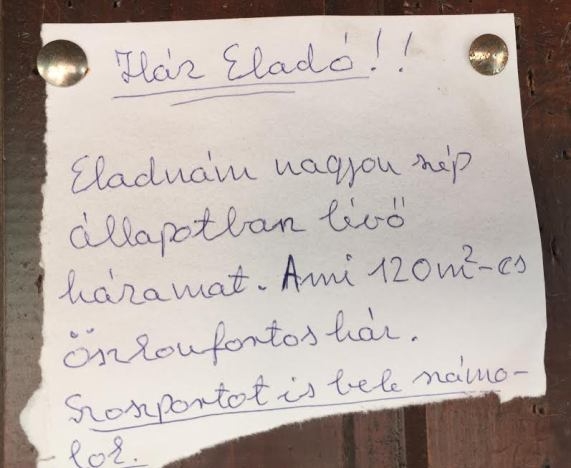 Ház Eladó!!
Eladnám nagyon szép
állapotban lévő
házamat. Ami 120m²-es
öszkonfortos ház.
Szoszportot is bele számo-
lok.